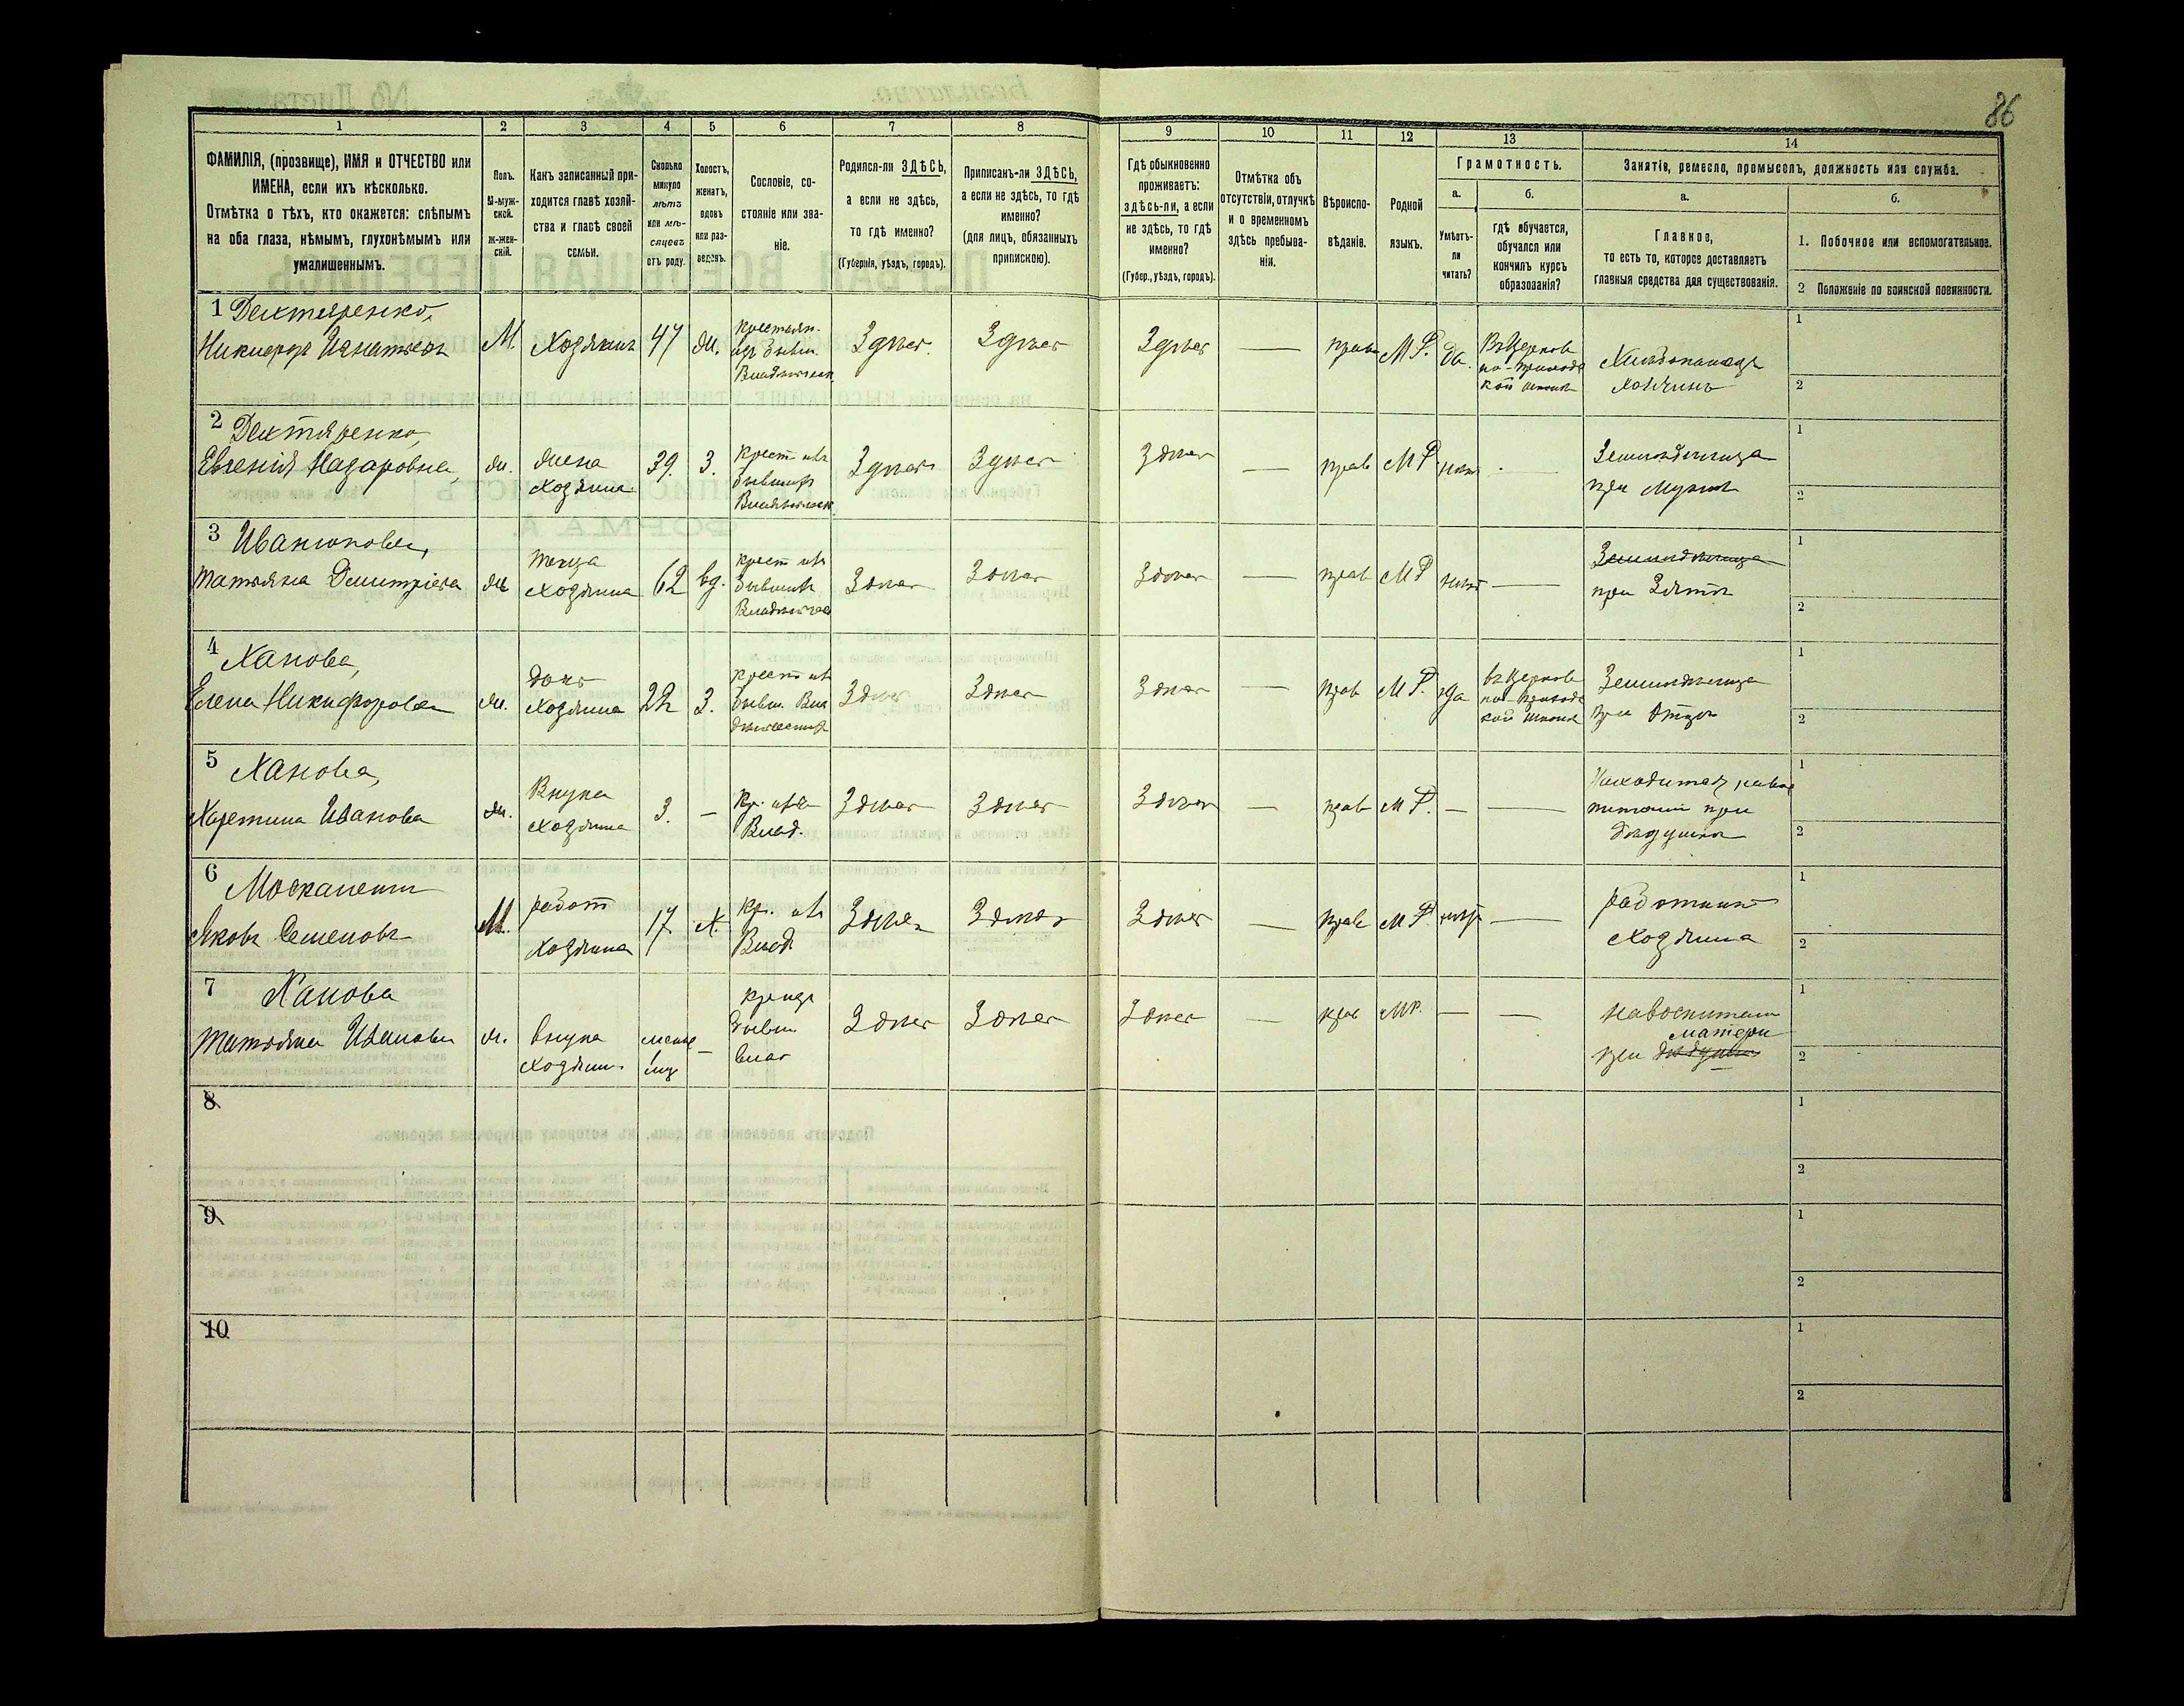 86
1
2
3
4
5
6
7
8
9
10
11
12
13
14
ФАМИЛІЯ, (прозвище), ИМЯ и ОТЧЕСТВО или
ИМЕНА, если ихъ нѣсколько.
Отмѣтка о тѣхъ, кто окажется: слѣпымъ
на оба глаза, нѣмымъ, глухонѣмымъ или
умалишеннымъ.
Полъ.
М-муж-
ской.
ж-жен-
скій.
Какъ записанный при-
ходится главѣ хозяй-
ства и главѣ своей
семьи.
Сколько
минуло
лѣтъ
или мѣ-
сяцевъ
отъ роду.
Холостъ,
женатъ,
вдовъ
или раз-
веденъ.
Сословіе, со-
стояніе или зва-
ніе.
Родился-ли ЗДѢСЬ,
а если не здѣсь,
то гдѣ именно?
(Губернія, уѣздъ, городъ).
Приписанъ-ли ЗДѢСЬ,
а если не здѣсь, то гдѣ
именно?
(для лицъ, обязанныхъ
припискою).
Гдѣ обыкновенно
проживаетъ:
здѣсь-ли, а если
не здѣсь, то гдѣ
именно?
(Губер., уѣздъ, городъ).
Отмѣтка объ
отсутствіи, отлучкѣ
и о временномъ
здѣсь пребыва-
ніи.
Вѣроиспо-
вѣданіе.
Родной
языкъ.
Грамотность.
а.
Умѣетъ-
ли
читать?
б.
гдѣ обучается,
обучался или
кончилъ курсъ
образованія?
Занятіе, ремесло, промыселъ, должность или служба.
а.
Главное,
то есть то, которое доставляетъ
главныя средства для существованія.
б.
1. Побочное или вспомогательное.
2 Положеніе по воинской повинности.
1 Дехтяренко,
Никифоръ Игнатьевъ
М.
Хозяинъ
47
жен.
крестьян-
Здѣсь
Здѣсь
Здѣсь
—
прав
М Р.
да.
Въ Церков
но-приходс
кой школѣ
Хлѣбопашецъ
Хозяинъ
1
2
2 Дехтяренко,
Евгенія Назаровна
ж.
жена
хозяина
39.
3.
Крест. изъ
бывшихъ
Здѣсь
Здѣсь
Здѣсь
—
прав
М Р.
нѣтъ
—
Земледѣлица
при Мужѣ
1
2
3 Иванюкова,
Татьяна Дмитріева
ж
теща
хозяина
62
вд.
крест изъ
бывшихъ
Здѣсь
Здѣсь
Здѣсь
—
прав
М Р
нѣтъ
—
Земледѣлица
при Зятѣ
1
2
4 Ханова,
Елена Никифорова
ж.
дочь
хозяина
22
3.
крест изъ
бывш. Вла
Здѣсь
Здѣсь
Здѣсь
—
прав
М Р.
да
въ Церков
но-приходс
кой школѣ
Земледѣлица
при Отцѣ
1
2
5 Ханова,
Харитина Иванова
ж.
Внука
хозяина
3.
—
Кр. изъ
Влад.
Здѣсь
Здѣсь
Здѣсь
—
прав
М Р.
—
—
Находится на вос
питаніи при
дѣдушкѣ
1
2
6
Яковъ Семеновъ
М.
работ
хозяина
17
х.
Кр. изъ
Влад
Здѣсь
Здѣсь
Здѣсь
—
прав
М Р
нѣтъ
—
работникъ
хозяина
1
2
7 Ханова
Татьяна Иванова
ж.
внука
хозяин.
менѣе
1 мѣ
—
бывш
влад
Здѣсь
Здѣсь
Здѣсь
—
прав
МР.
—
—
на воспитан
матери
при дѣдушкѣ
1
2
8
1
2
9
1
2
10
1
2